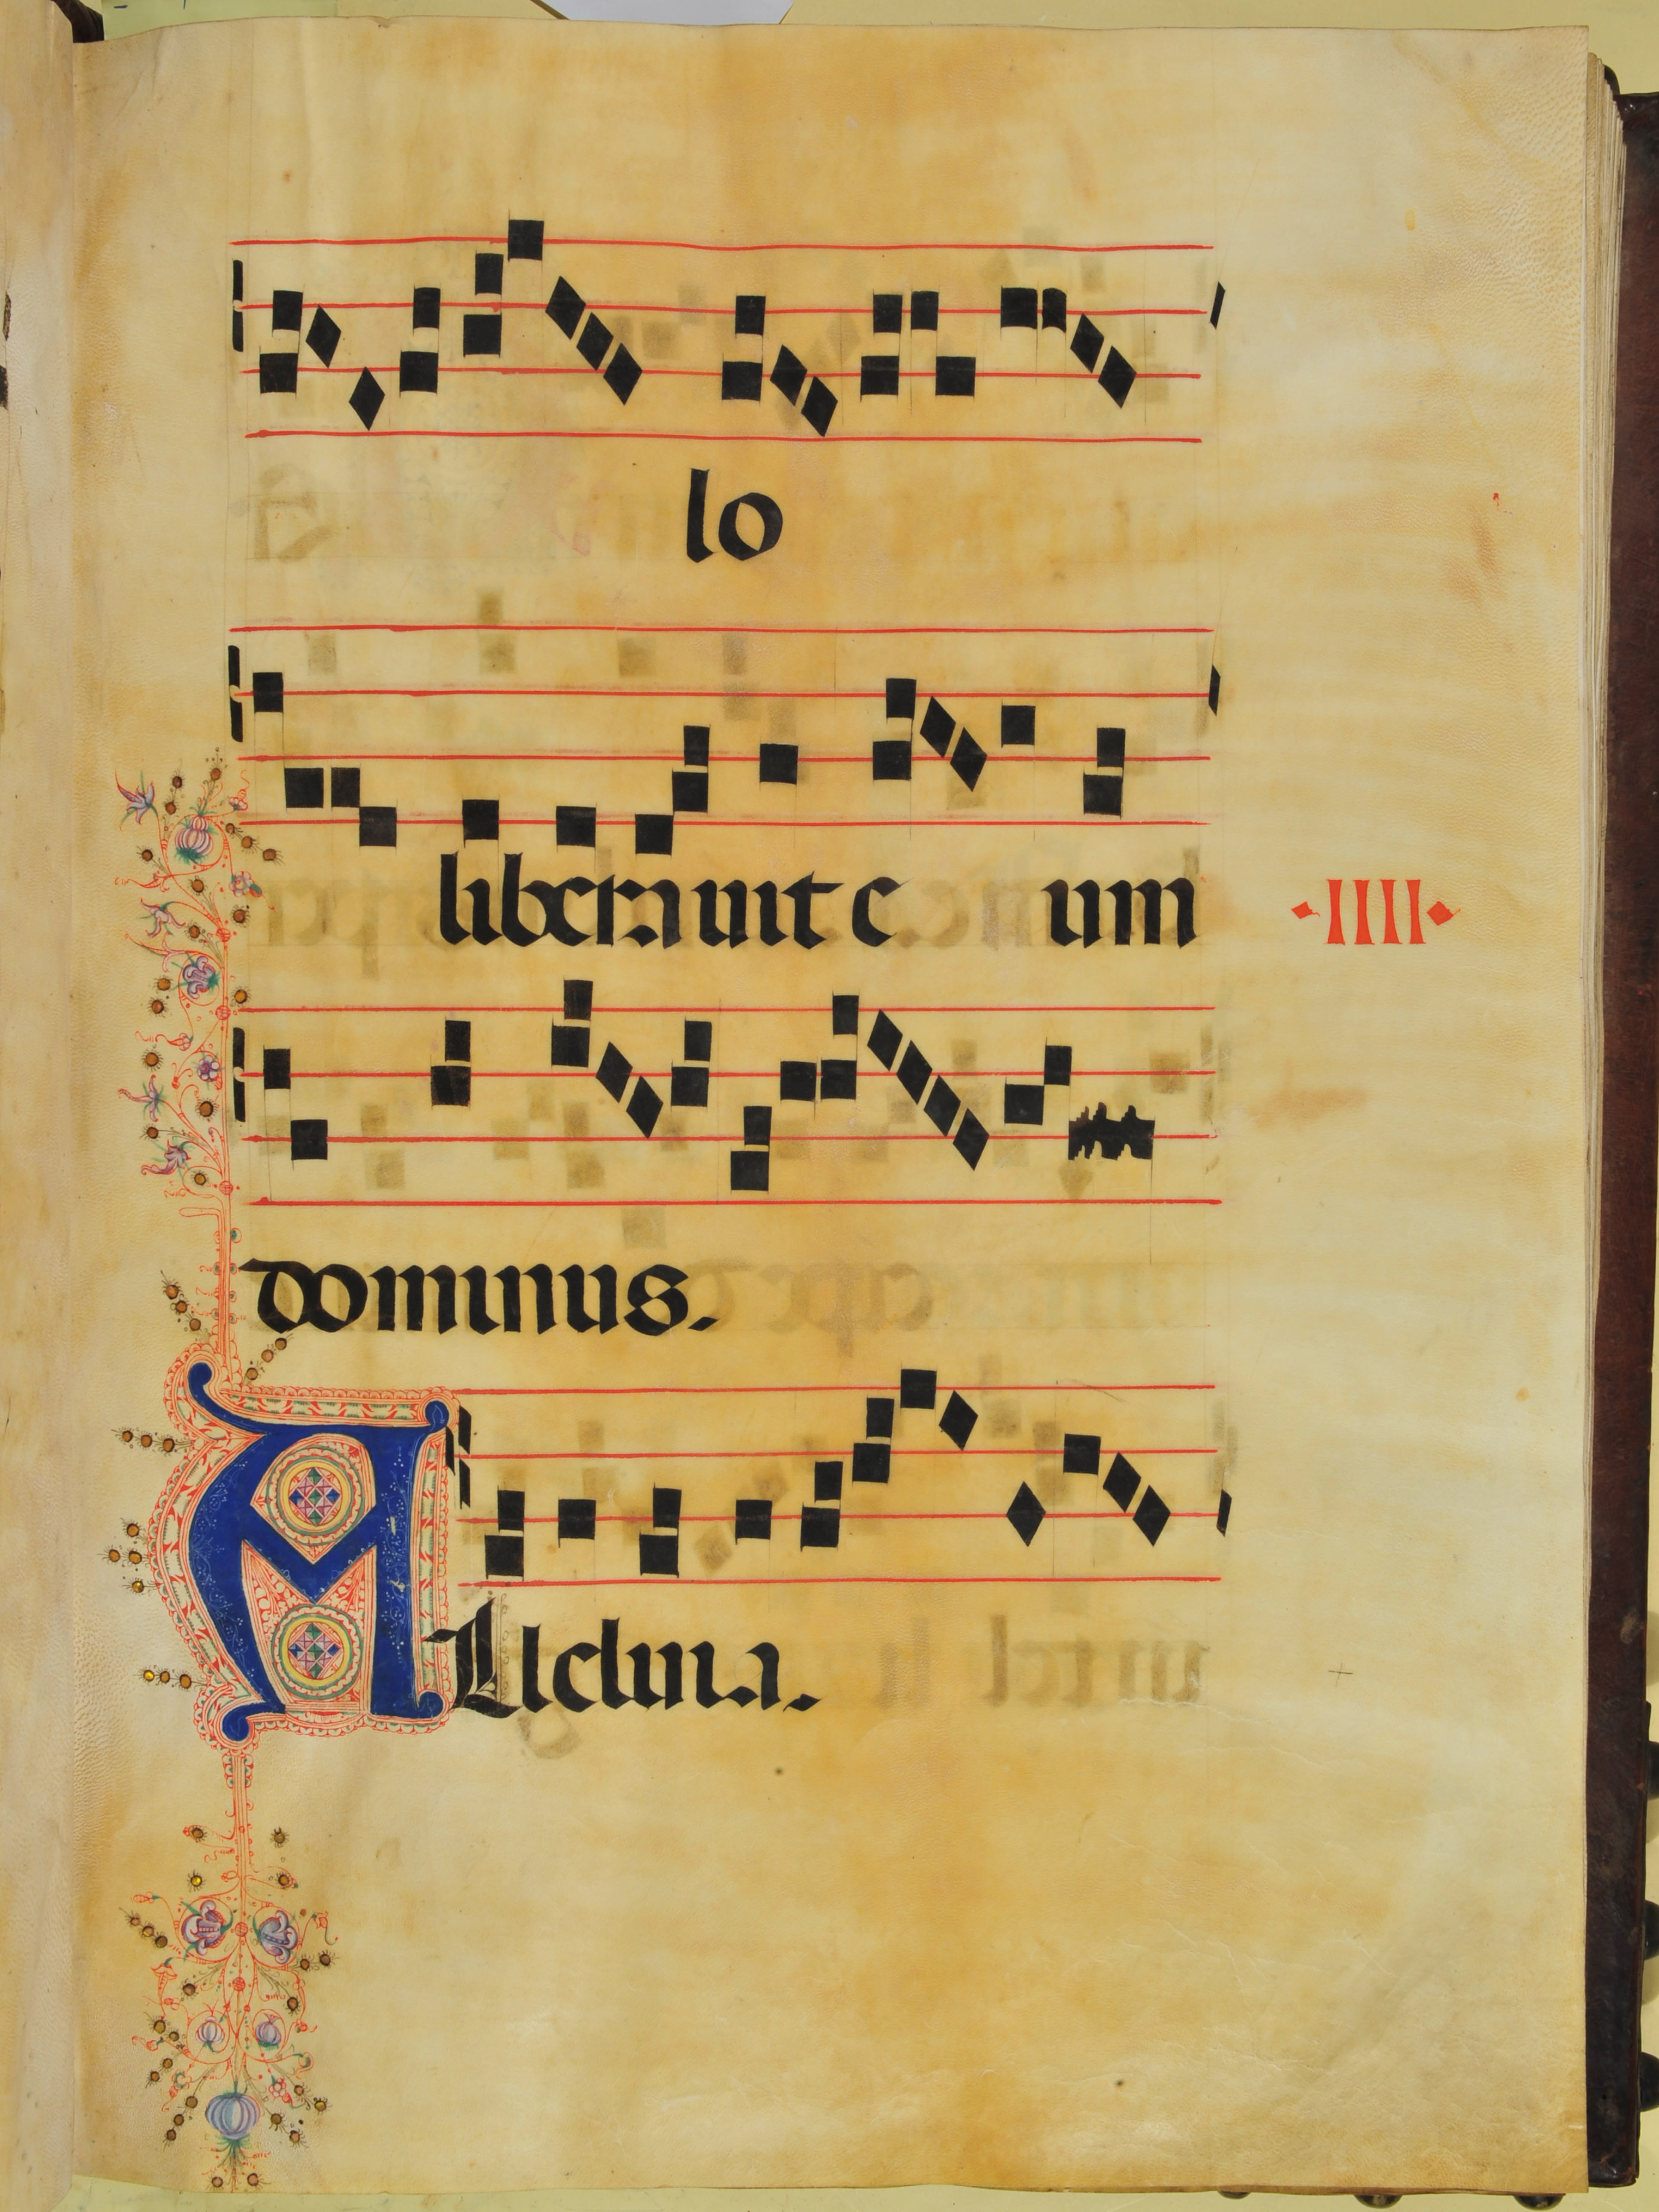 lo
liberauit e um
·IIII·
dominus.
ALleluia.